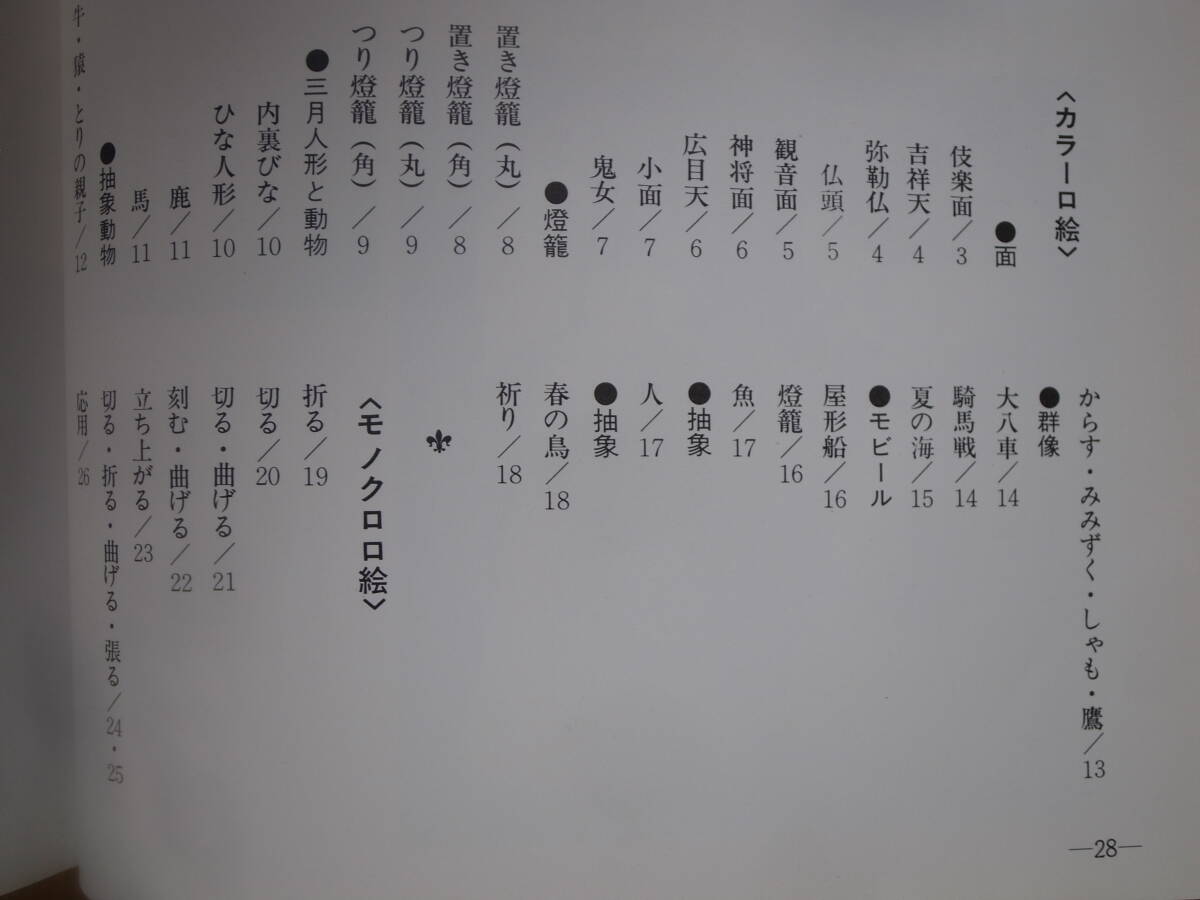 〈カラー口絵〉
●面
伎楽面/3
吉祥天/4
弥勒仏/4
仏頭/5
観音面/5
神将面/6
広目天/6
小面/7
鬼女/7
●燈籠
置き燈籠(丸)/8
置き燈籠(角)/8
つり燈籠(丸)/9
つり燈籠(角)/9
●三月人形と動物
内裏びな/10
ひな人形/10
鹿/11
馬/11
●抽象動物
牛・猿・とりの親子/12
からす・みみずく・しゃも・鷹/13
●群像
大八車/14
騎馬戦/14
夏の海/15
●モビール
屋形船/16
燈籠/16
魚/17
●抽象
人/17
●抽象
春の鳥/18
祈り/18
〈モノクロ口絵〉
折る/19
切る/20
切る・曲げる/21
刻む・曲げる/22
立ち上がる/23
切る・折る・曲げる・張る/24・25
応用/26
—28—